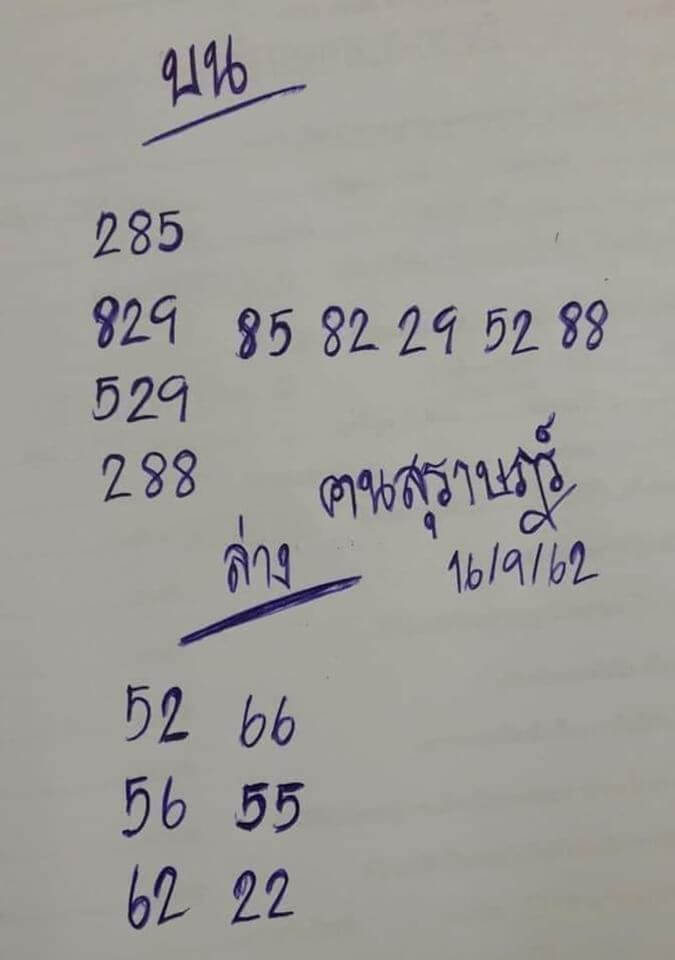 บน
285
829 85 82 29 52 88
529
288
คนสุราษฎร์
ล่าง
16/9/62
52 66
56 55
62 22